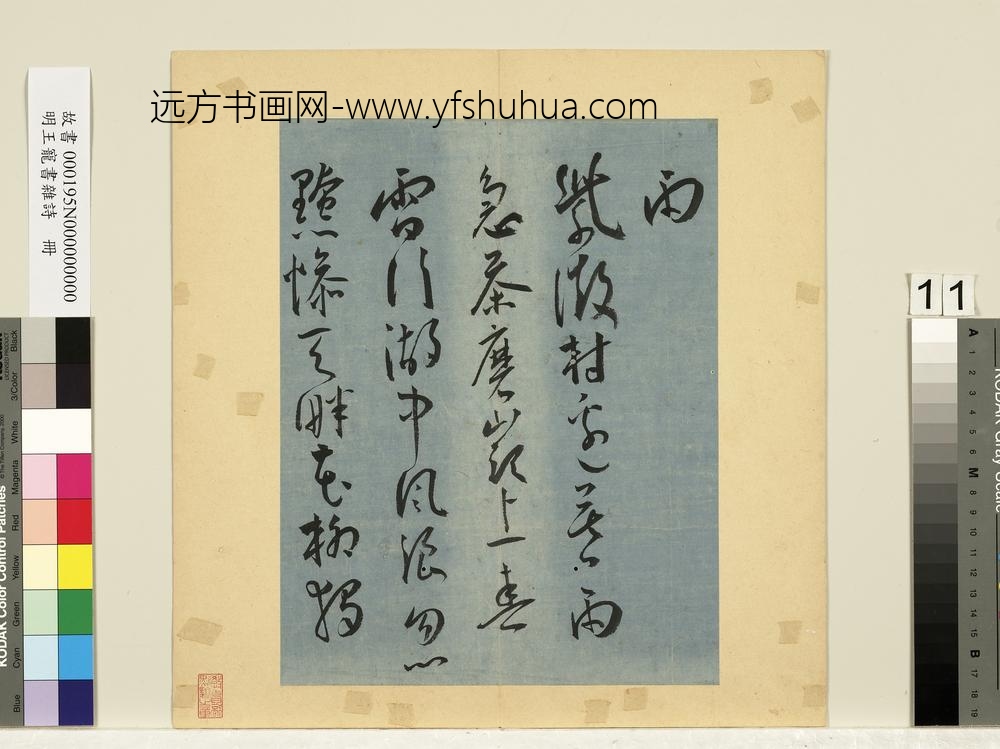 远方书画网-www.yfshuhua.com
雨
紫微村邊苦雨
急茶磨嶺上春
雲行湖中風浪忽
黯慘天畔花柳獨
故書 000195N000000000
明王寵書雜詩 冊
11
KODAK Color Control Patches
Blue
Cyan
Green
Yellow
Red
Magenta
White
3/Color
Black
KODAK Gray Scale
A 1 2 3 4 5 6 M 8 9 10 11 12 13 14 15 B 17 18 19